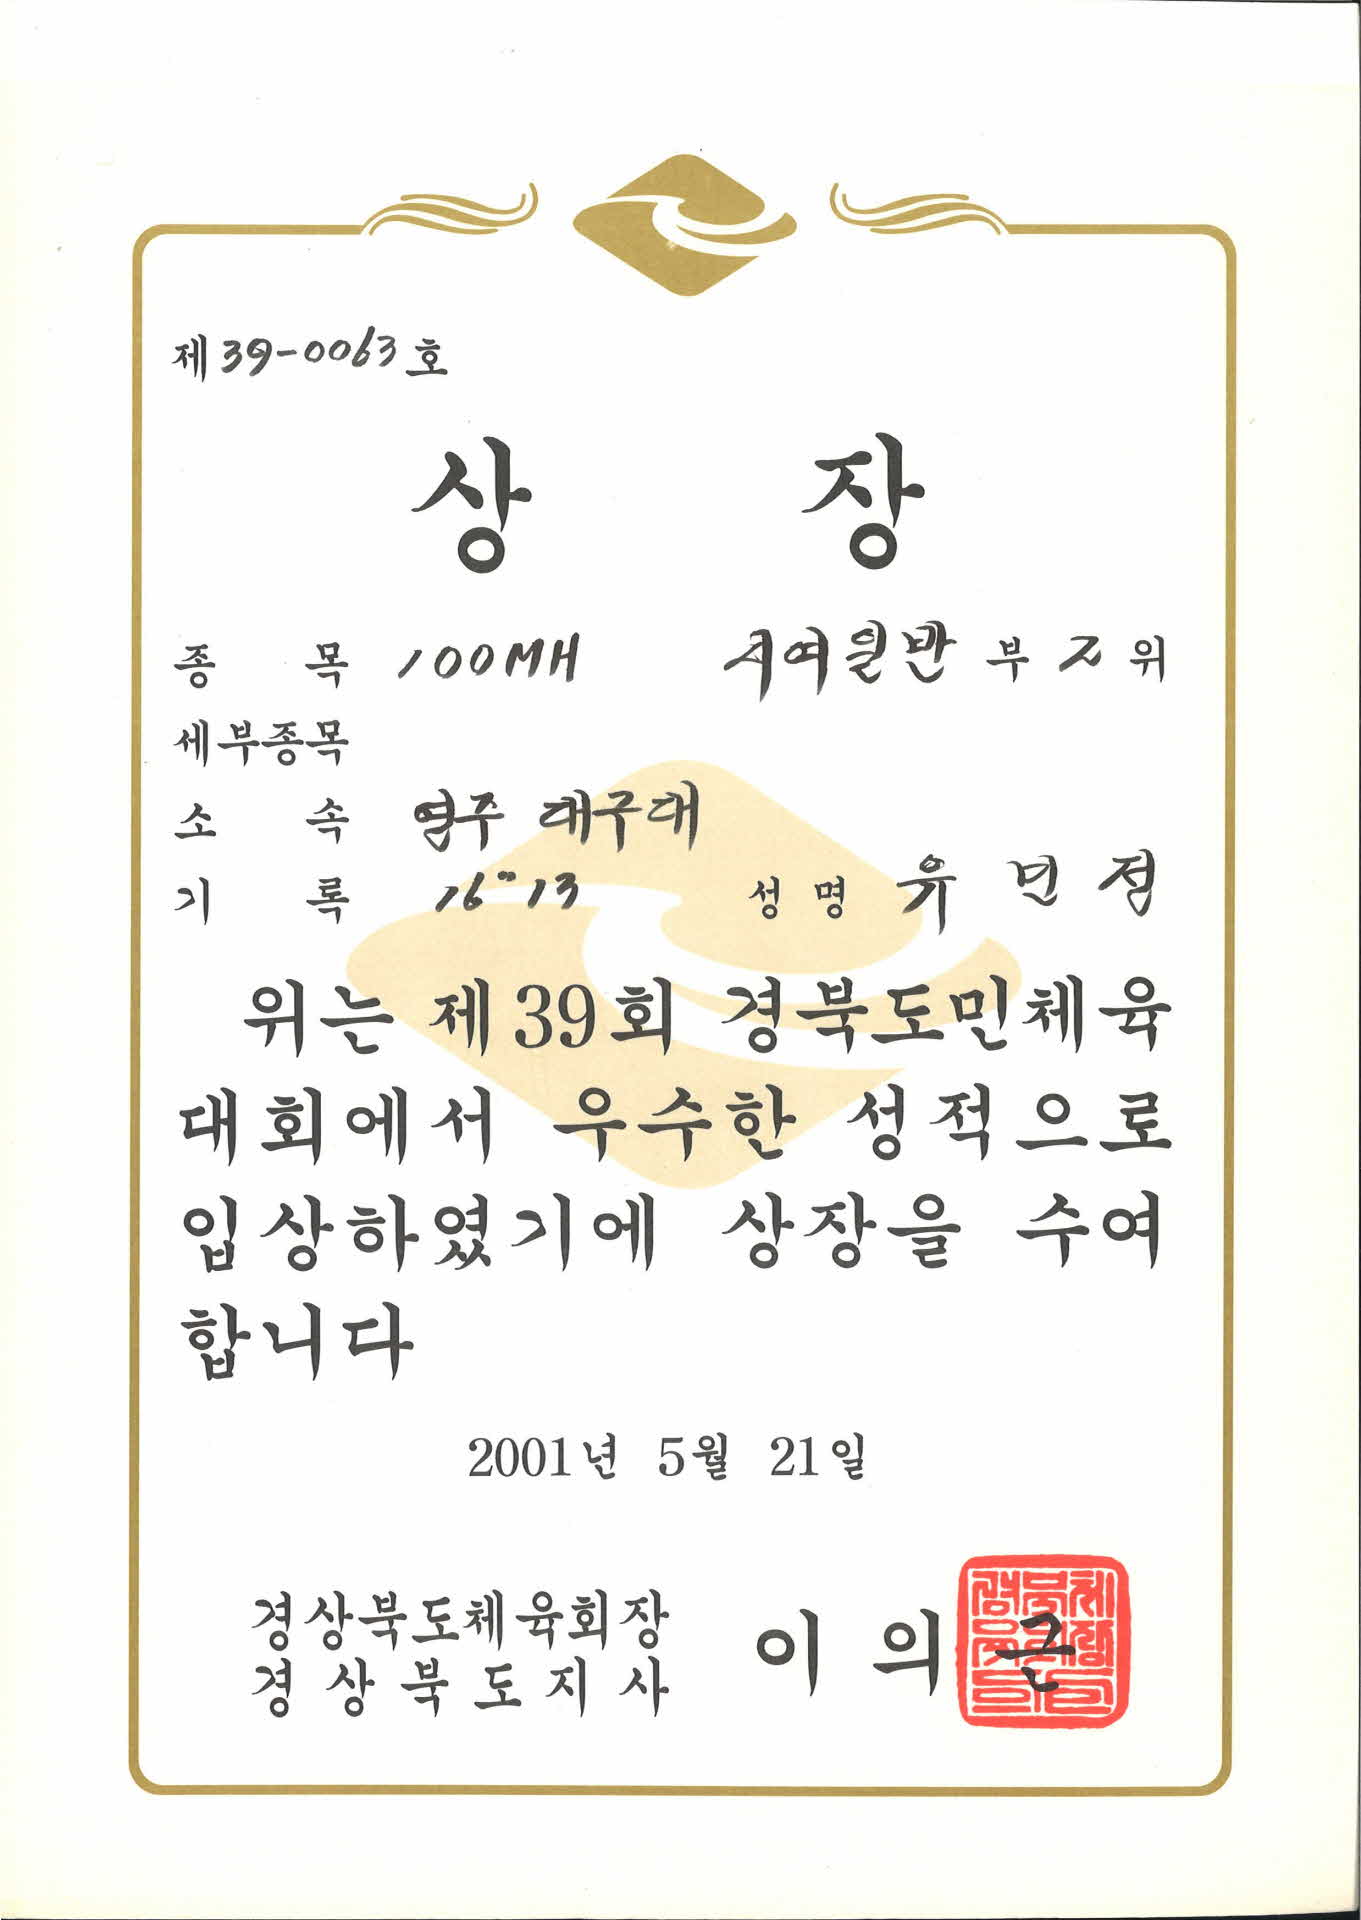 제 39-0063 호
상 장
종 목 100MH 시여일반 부 2 위
세부종목
소 속 영주 대구대
기 록 16"13 성 명 유 민 정
위는 제39회 경북도민체육
대회에서 우수한 성적으로
입상하였기에 상장을 수여
합니다
2001년 5월 21일
경상북도체육회장
경상북도지사
이 의 근